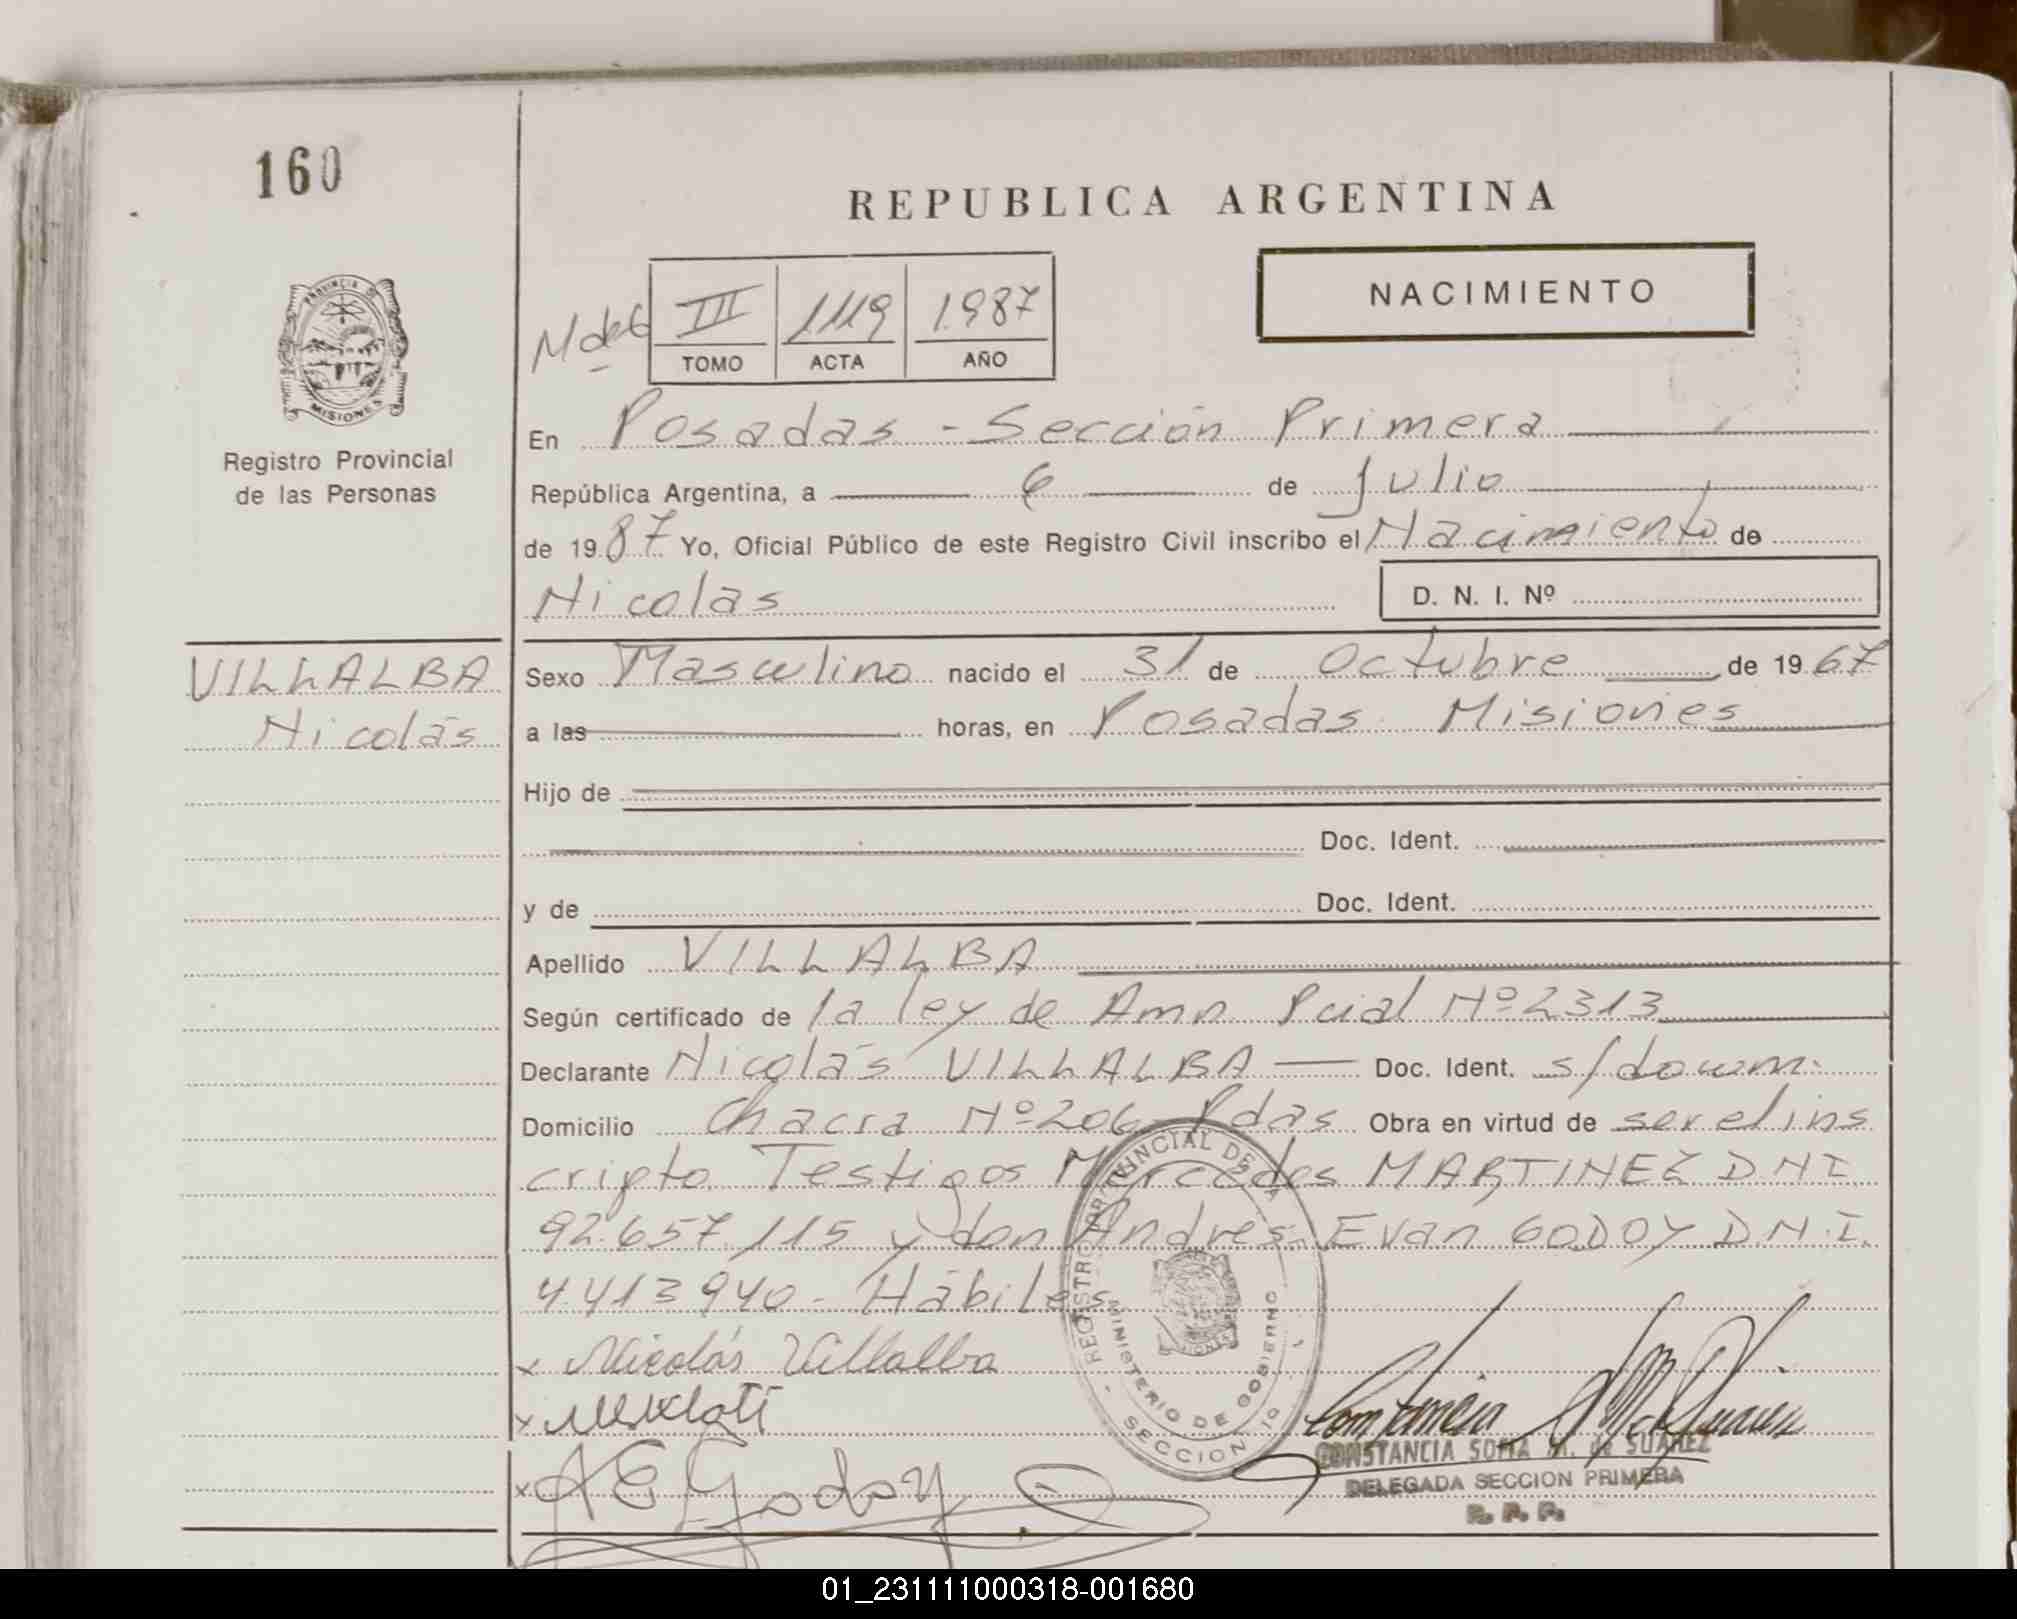 160
REPUBLICA ARGENTINA
NACIMIENTO
III 1119 1.987
TOMO ACTA AÑO
PROVINCIA DE
MISIONES
Registro Provincial
de las Personas
En Posadas - Sección Primera
República Argentina, a 6 de Julio
de 1987 Yo, Oficial Público de este Registro Civil inscribo el Nacimiento de
Nicolas
D. N. I. Nº
VILLALBA
Nicolás
Sexo Masculino nacido el 31 de Octubre de 1967
a las horas, en Posadas Misiones
Hijo de
Doc. Ident.
y de Doc. Ident.
Apellido VILLALBA
Según certificado de la ley de Amn. Pcial Nº 2313
Declarante Nicolás VILLALBA Doc. Ident. s/docum.
Domicilio Chacra Nº 206 Pdas Obra en virtud de ser el ins
cripto. Testigos Mercedes MARTINEZ D.N.I.
92.657.115 y don Andres Evan GODOY D.N.I.
4.413.940 - Hábiles
x Nicolás Villalba
x
x AEGodoy
REGISTRO PROVINCIAL DE LA
MINISTERIO DE GOBIERNO
SECCION
CONSTANCIA SOFIA M. de SUAREZ
DELEGADA SECCION PRIMERA
R. P. P.
01_231111000318-001680